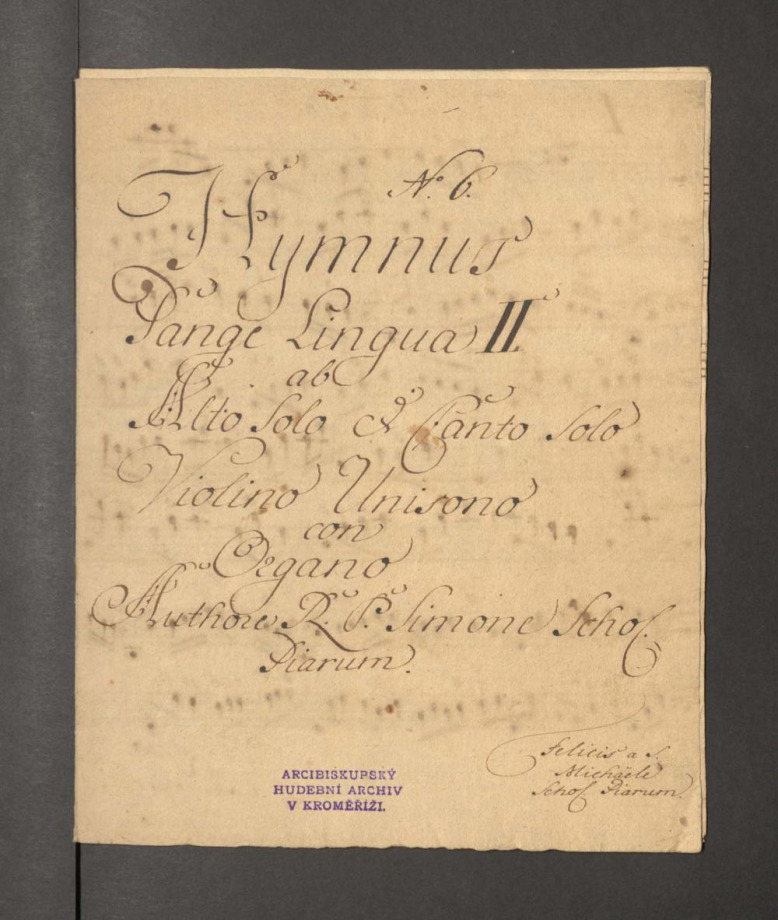 No. 6.
Hymnus
Pange Lingua II.
ab
Alto Solo & Canto Solo
Violino Unisono
con
Organo
Authore R. P. Simone Schol.
Piarum.
Felicis a S.
Michaele
Schol. Piarum.
ARCIBISKUPSKÝ
HUDEBNÍ ARCHIV
V KROMĚŘÍŽI.